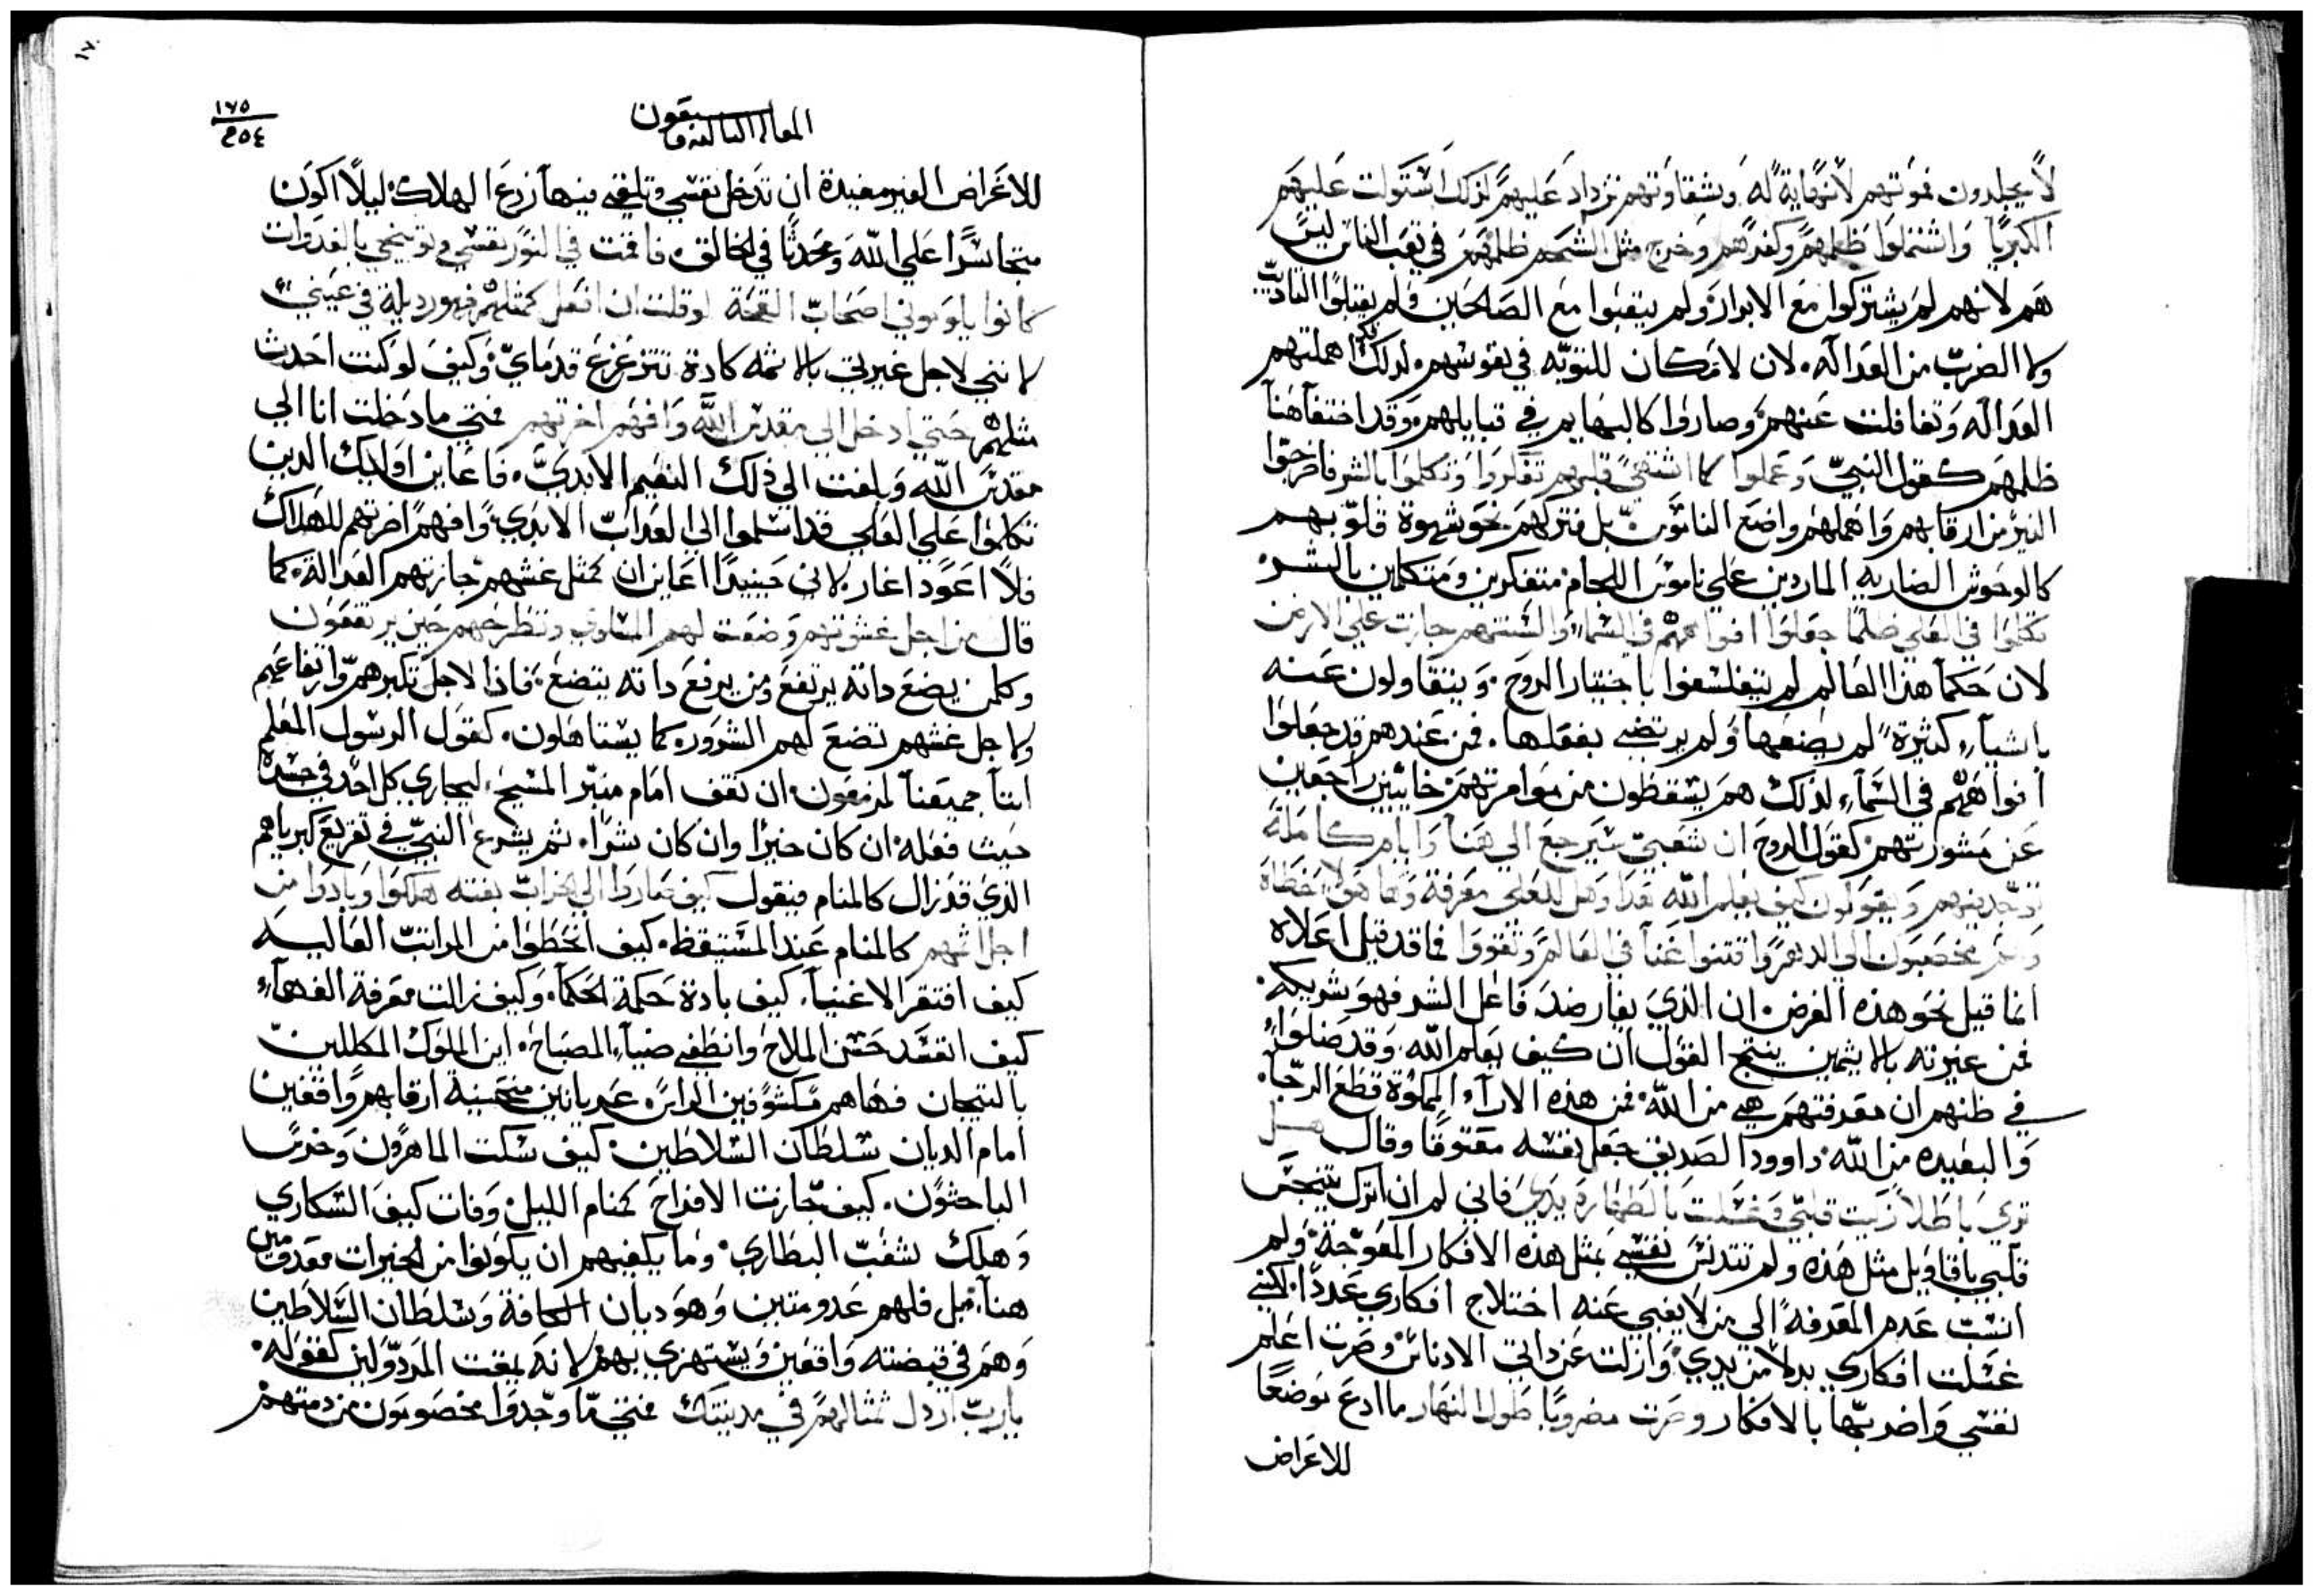 لا يجلدون فموتهم لا نهاية له وبشقاوتهم تزداد عليهم لذلك استولت عليهم
الكبريا واشتملوا ظلمهم وكفرهم وخرج مثل الشحم ظلمهم في تعب الناس ليس
هم لانهم لم يشتركوا مع الابرار ولم يتعبوا مع الصالحين ولم يقبلوا التاديب
ولا الضرب من العداله لان لا مكان للتوبه في نفوسهم لذلك اهملتهم
العداله وتغافلت عنهم وصاروا كالبهايم في قبايلهم وقد اختفا هنا
ظلمهم كقول النبي وعملوا كما اشتهى قلبهم تفكروا وتكلموا بالشر فاخرجوا
النير من ارقابهم واهملهم واضع الناموس بل فتركهم نحو شهوة قلوبهم
كالوحوش الضاريه الماردين على ناموس اللجام متفكرين ومتكلمين بالشر
تكلموا في العلى ظلما جعلوا افواههم في السماء والسنتهم جازت على الارض
لان حكما هذا العالم لم يتفلسفوا باختيار الروح ويتقاولون عنه
باشياء كثيرة لم يصنعها ولم يرتضي بفعلها فمن عندهم قد جعلوا
افواههم في السماء لذلك هم يسقطون من موامرتهم خائبين راجعين
عن مشورتهم كقول الروح ان شعبي سيرجع الى هنا وايام كاملة
توجد فيهم ويقولون كيف يعلم الله بهذا وهل للعلي معرفة وها هولا الخطاة
وهم مخصبون الى الدهر واقتنوا غنا في العالم وتقووا فما قد قيل اعلاه
انما قيل نحو هذه الغرض ان الذي يعارض فاعل الشر فهو شريكه
فمن غيرته بالاثيمين ينتج القول ان كيف يعلم الله وقد ضلوا
في ظنهم ان معرفتهم هي من الله فمن هذه الاراء المملوة قطع الرجا
والبعيده من الله داوود الصديق جعل نفسه معتوقا وقال هل
ترى باطلا زكيت قلبي وغسلت بالطهارة يدي فاني لم ان اترك يتنجس
قلبي باقاويل مثل هذه ولم تتدنس نفسي بمثل هذه الافكار المعوجة ولم
انسب عدم المعرفة الى من لا يغبي عنه اختلاج افكاري عددا لكني
غسلت افكاري بدلا من يدي وازلت عن ذاتي الادناس وصرت اعلم
نفسي واضربها بالافكار وصرت مضروبا طول النهار ما ادع موضعا
للاعراض
١٧٠
١٧٥
٢٥٤
سبعون
للاعراض الغير مفيدة ان تدخل نفسي وتلقي فيها زرع الهلاك ليلا اكون
متجاسرا على الله ومحدثا في الخالق فاقمت في النور نفسي ولو نتجي بالغدوات
كانوا ياومونى اصحاب القحة لو قلت ان افعل كمثلهم فهو رديلة في عيني
لانني لاجل غيرتي بالاثمه كادة تتزعزع قدماي وكيف لو كنت احدث
مثلهم حتى ادخل الى مقدس الله وافهم اخرتهم فمتى ما دخلت انا الى
مقدس الله وبلغت الى ذلك النعيم الابدي فاعاين اوليك الدين
تكلموا على العلي قد اسلموا الى العداب الابدي وافهم اخرتهم للهلاك
فلا اعود اغار لاني حينيدا اعاين ان كمثل غشهم جازتهم العدالة كما
قال من اجل غشوشهم وضعت لهم المساوي وتطرحهم حين يرتفعون
وكلمن يضع داته يرتفع ومن يرفع داته يتضع فاذا لاجل تكبرهم وارتفاعهم
ولاجل غشهم تضع لهم الشرور كما يستاهلون كقول الرسول المعلم
اننا جميعنا لمزمعون ان نقف امام منبر المسيح ليجازي كل احد في جسده
حيث فعله ان كان خيرا وان كان شرا ثم يشرع النبي في تقريع كبرياهم
الذي قد زال كالمنام فيقول كيف صاروا الى الخراب بغته هلكوا وبادوا من
اجل اثمهم كالمنام عند المستيقظ كيف انحطوا من المراتب العاليه
كيف افتقر الاغنيا كيف بادة حكمة الحكما وكيف زالت معرفة الفهماء
كيف انفسد حسن الملاح وانطفي ضياء المصباح اين الملوك المكللين
بالتيجان فهاهم مكشوفين الراس عريانين منحنية ارقابهم واقفين
امام الديان سلطان السلاطين كيف سكت الماهرون وخرس
الباحثون كيف جازت الافراح كمنام الليل وفات كيف السكارى
وهلك شغب البطاري وما يكفيهم ان يكونوا من الخيرات معدومين
هنا بل فلهم عدو متين وهو ديان الكافة وسلطان السلاطين
وهم في قبضته واقعين ويستهزي بهم لانه يمقت المردولين كقوله
يا رب اردل تمثالهم في مدينتك فمتى ما وجدوا مخصومون من دمتهم